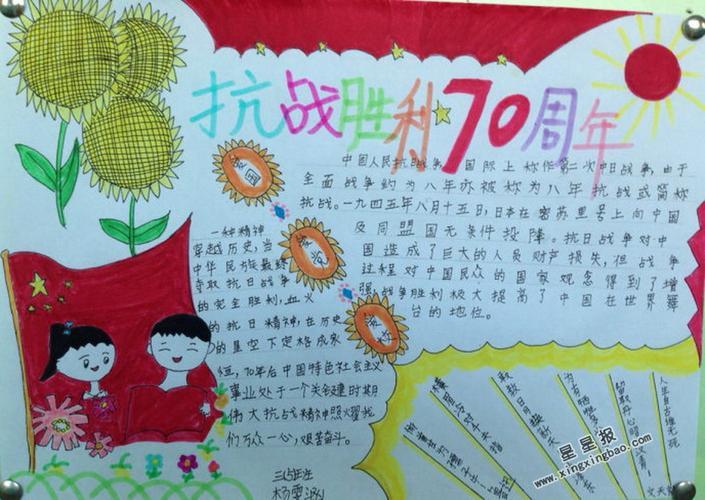 抗战胜利70周年
中国人民抗日战争,国际上称作第二次中日战争,由于
全面战争约为八年亦被称为八年抗战或简称
抗战。一九四五年八月十五日,日本在密苏里号上向中国
及同盟国无条件投降。抗日战争对中
国造成了巨大的人员财产损失,但战争
过程对中国民众的国家观念得到了增
强战争胜利极大提高了中国在世界舞
台的地位。
爱国
爱党
一种精神
穿越历史,当
中华民族最终
争取抗日战争
的完全胜利,血火
的抗日精神,在历史
的星空下定格成永
恒,70年后中国特色社会主义
事业处于一个关键时期
伟大抗战精神照耀我
们万众一心,艰苦奋斗。
三
杨雯涵
横眉冷对千夫指
俯首甘为孺子牛
敢教日月换新天
为有牺牲多
留取丹心照汗青
人生自古谁无死
文天
星星报
www.xingxingbao.com